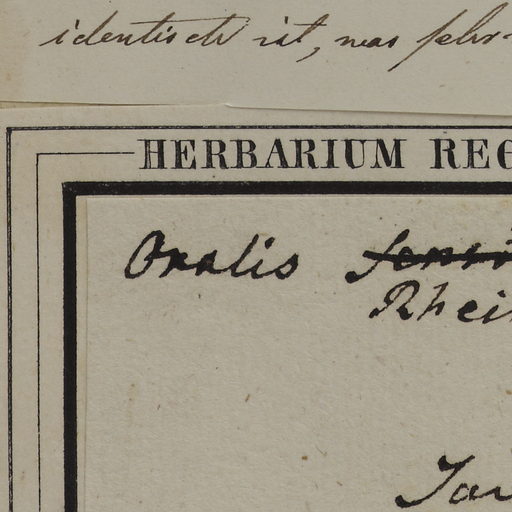 identisch ist, was sehr
HERBARIUM REG
Oxalis sensi
Rhei
Ja